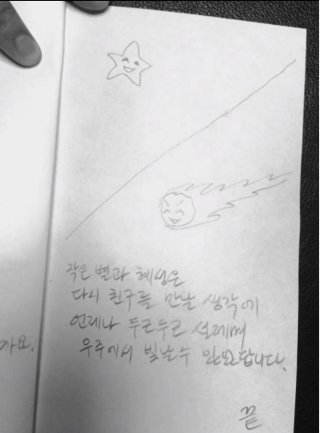 작은 별과 혜성은
다시 친구를 만날 생각에
언제나 두근두근 설레며
우주에서 빛날 수 있었답니다.
가요.
끝